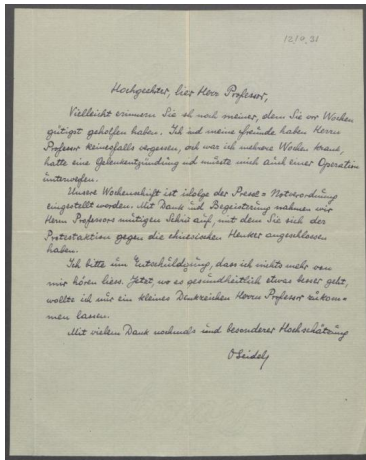 12/IX.31
Hochgeehrter, lieber Herr Professor,
Vielleicht erinnern Sie sich noch meiner, dem Sie vor Wochen
gütigst geholfen haben. Ich und meine Freunde haben Herrn
Professor keinesfalls vergessen, doch war ich mehrere Wochen krank,
hatte eine Gelenkentzündung und musste mich auch einer Operation
unterwerfen.
Unsere Wochenschrift ist infolge der Presse-Notverordnung
eingestellt worden. Mit Dank und Begeisterung nahmen wir
Herrn Professors mutigen Schritt auf, mit dem Sie sich der
Protestaktion gegen die chinesischen Henker angeschlossen
haben.
Ich bitte um Entschuldigung, dass ich nichts mehr von
mir hören liess. Jetzt, wo es gesundheitlich etwas besser geht,
wollte ich nur ein kleines Denkzeichen Herrn Professor zukom-
men lassen.
Mit vielem Dank nochmals und besonderer Hochschätzung
O Seidel